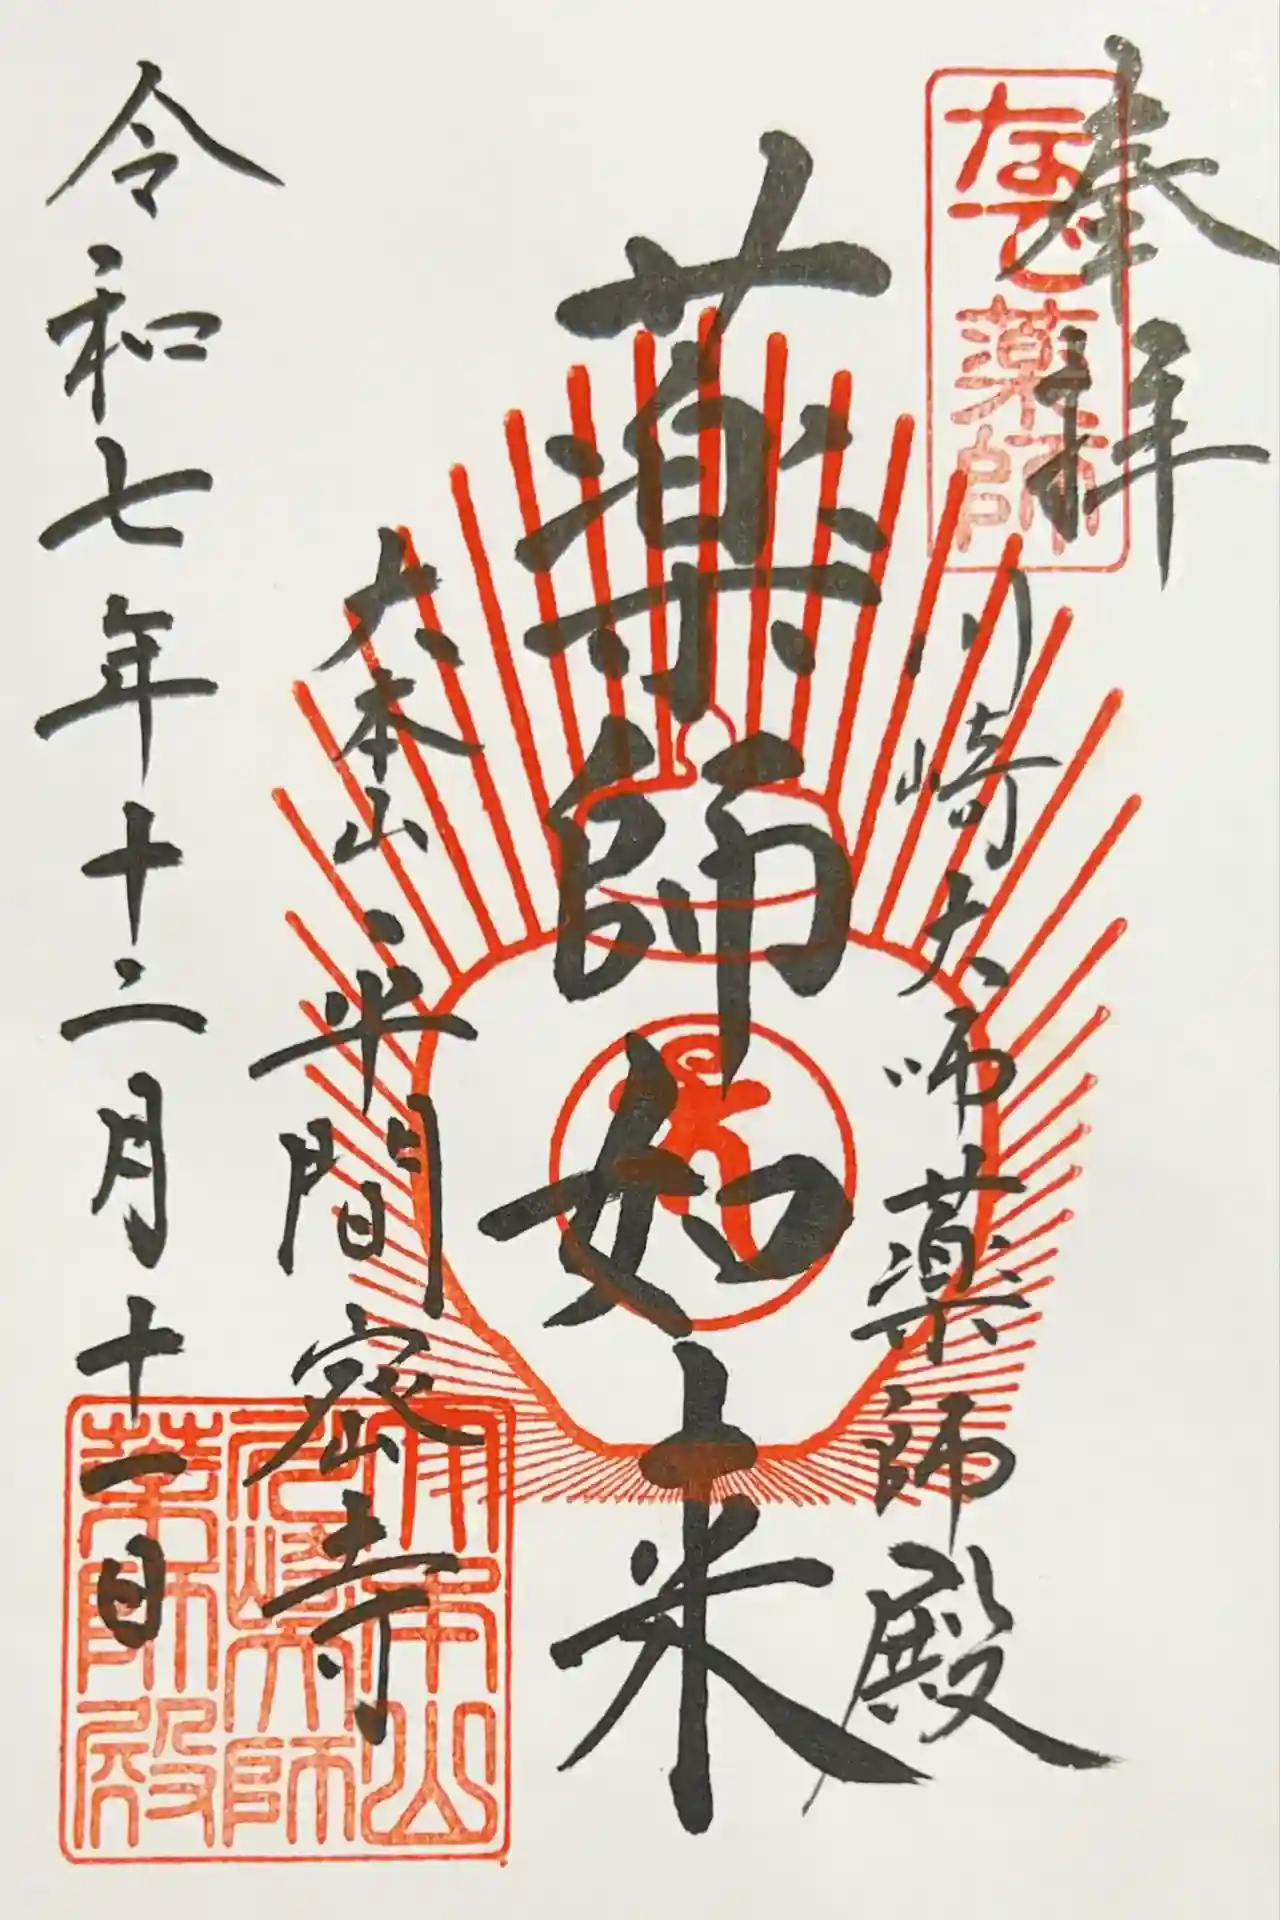 奉拝
なで薬師
川崎大師薬師殿
薬師如来
大本山平間密寺
令和七年十二月十一日
大本山
川崎大師
薬師殿